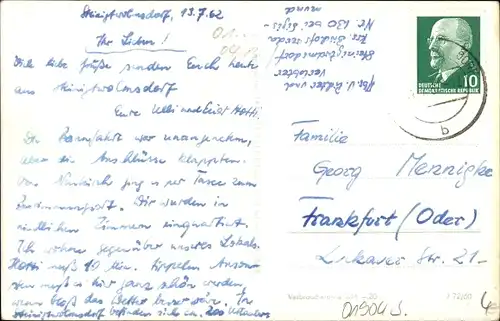 Steinigtwolmsdorf, 13.7.62
Ihr Lieben!
Viele liebe Grüße senden Euch heute
aus Steinigtwolmsdorf
Eure Ulli und Hotti.
Die Bahnfahrt war unangenehm,
aber die Anschlüsse klappten.
Von Neukirch ging es per Taxe zum
Wir wurden in
niedlichen Zimmern einquartiert.
Ich wohne gegenüber unseres Lokals.
Hotti muß 10 Min. tippeln. Ansonsten
muß es hier ganz schön werden,
wenn bloß das Wetter besser wäre. In
Steinigtwolmsdorf befinden sich ca. 200 Urlauber
Steinigtwolmsdorf
Kr. Bischofswerda
Nr. 130 bei
DEUTSCHE
DEMOKRATISCHE REPUBLIK
10
b
Familie
Georg Mennigke
Frankfurt (Oder)
Lukauer Str. 21
01904 S.